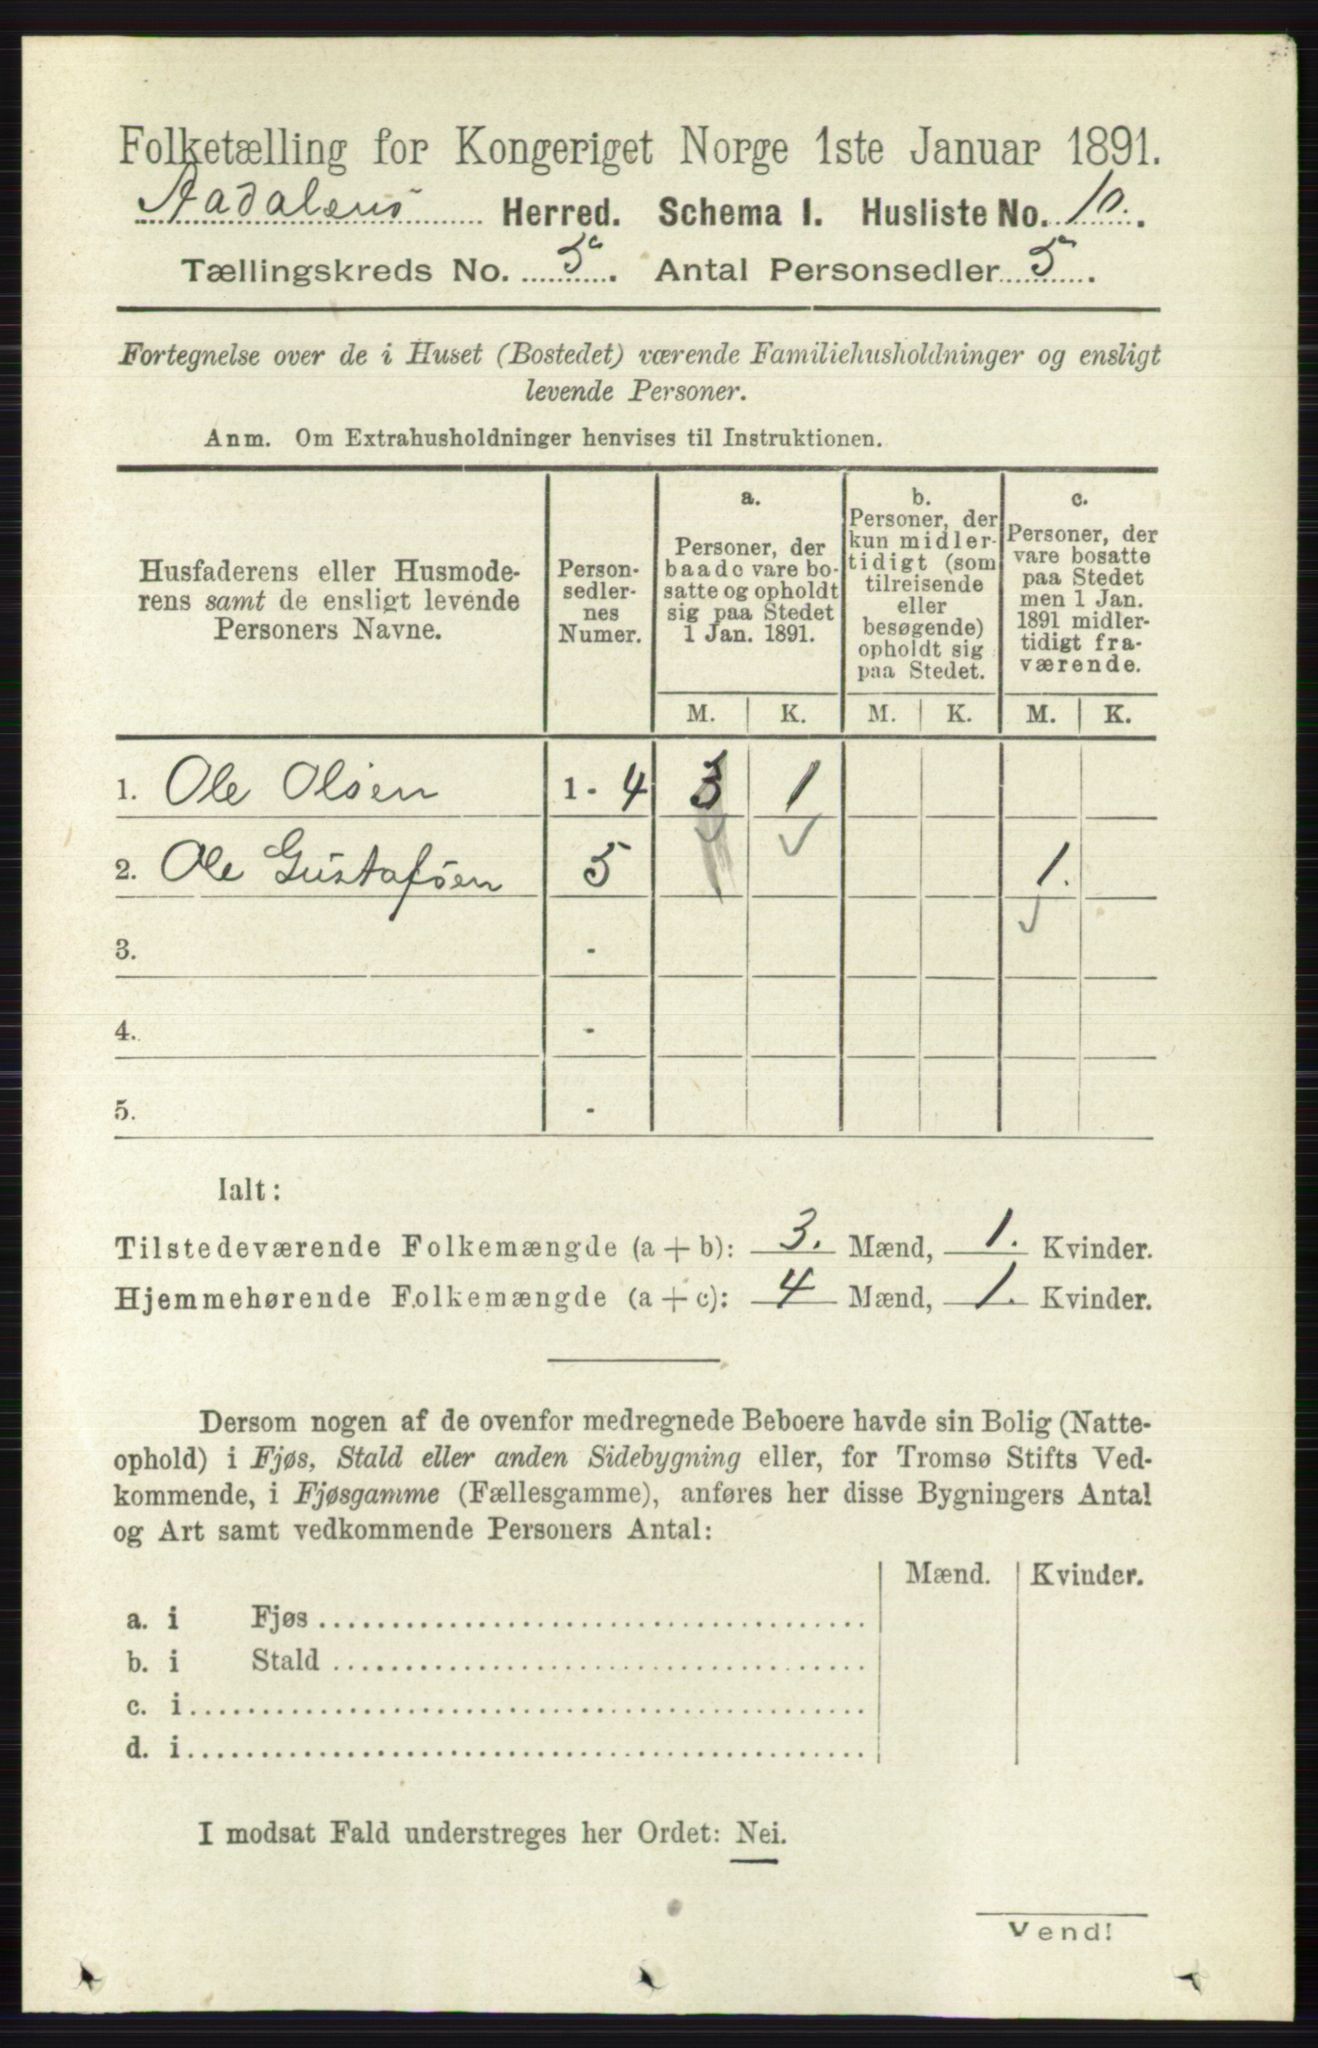 Folketælling for Kongeriget Norge 1ste Januar 1891.
Aadalens Herred. Schema I. Husliste No. 10.
Tællingskreds No. 5. Antal Personsedler 5.
Fortegnelse over de i Huset (Bostedet) værende Familiehusholdninger og ensligt
levende Personer.
Anm. Om Extrahusholdninger henvises til Instruktionen.
Husfaderens eller Husmode-
rens samt de ensligt levende
Personers Navne.
Person-
sedler-
nes
Numer.
a.
Personer, der
baade vare bo-
satte og opholdt
sig paa Stedet
1 Jan. 1891.
b.
Personer, der
kun midler-
tidigt (som
tilreisende
eller
besøgende)
opholdt sig
paa Stedet.
c.
Personer, der
vare bosatte
paa Stedet
men 1 Jan.
1891 midler-
tidigt fra-
værende.
M. K. M. K. M. K.
1. Ole Olsen 1 - 4 3 1
2. Ole Gustafsen 5 1.
3. -
4. -
5. -
Ialt:
Tilstedeværende Folkemængde (a + b): 3. Mænd, 1. Kvinder.
Hjemmehørende Folkemængde (a + c): 4 Mænd, 1. Kvinder.
Dersom nogen af de ovenfor medregnede Beboere havde sin Bolig (Natte-
ophold) i Fjøs, Stald eller anden Sidebygning eller, for Tromsø Stifts Ved-
kommende, i Fjøsgamme (Fællesgamme), anføres her disse Bygningers Antal
og Art samt vedkommende Personers Antal:
Mænd. Kvinder.
a. i Fjøs
b. i Stald
c. i
d. i
I modsat Fald understreges her Ordet: Nei.
Vend!